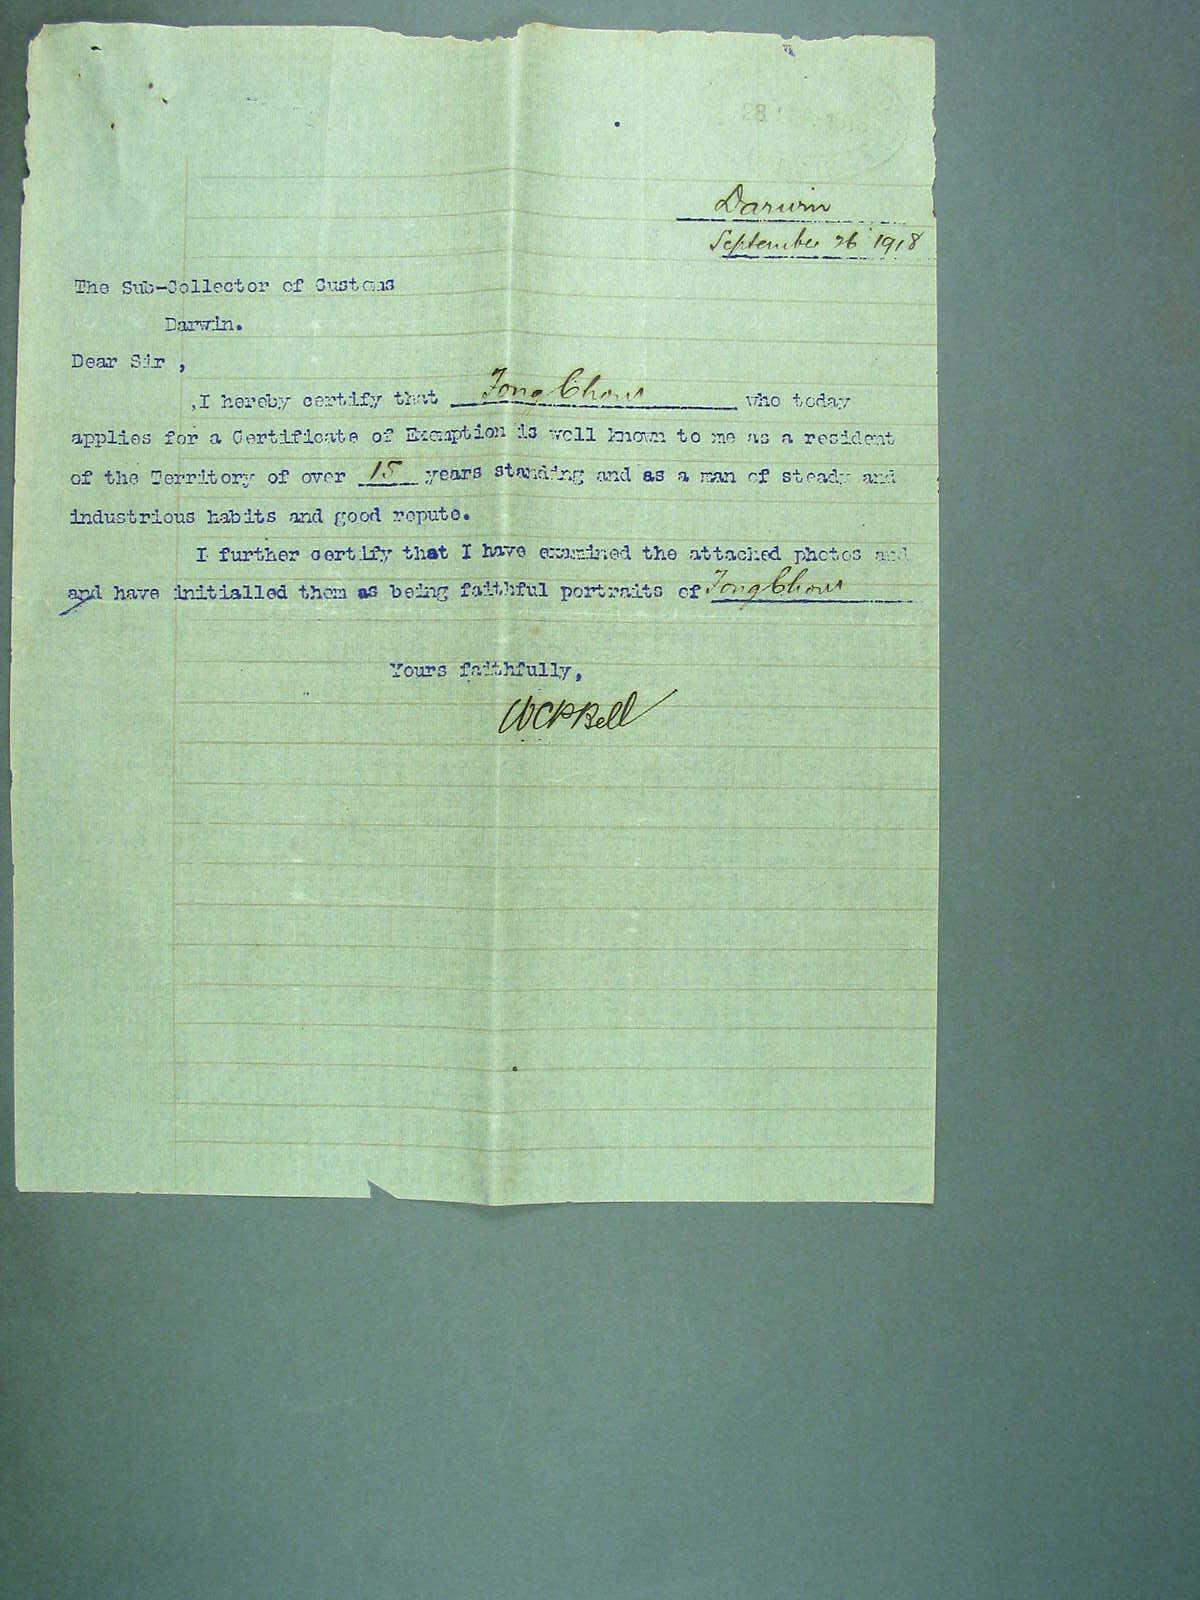 28
Darwin
September 26 1918
The Sub-Collector of Customs
Darwin.
Dear Sir ,
,I hereby certify that Fong Chow who today
applies for a Certificate of Exemption is well known to me as a resident
of the Territory of over 15 years standing and as a man of steady and
industrious habits and good repute.
I further certify that I have examined the attached photos and
and have initialled them as being faithful portraits of Fong Chow
Yours faithfully,
WCPBell